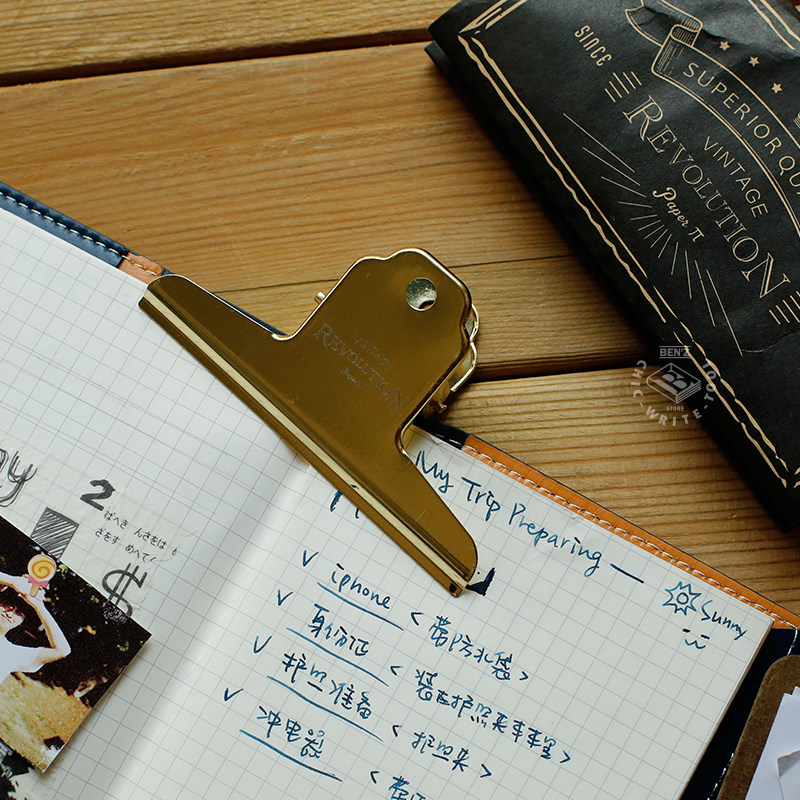 SINCE
SUPERIOR QU
VINTAGE
REVOLUTION
Paper π
BEN'Z
STORE
CHIC-WRITE-TOOL
VINTAGE
REVOLUTION
My Trip Preparing —
Sunny
✓ iphone <带防水袋>
✓ 身份证 <装在护照夹
✓ 护照准备 <护照夹>
✓ 冲电器
2
ばへき んさをは
ざをす めへて
$